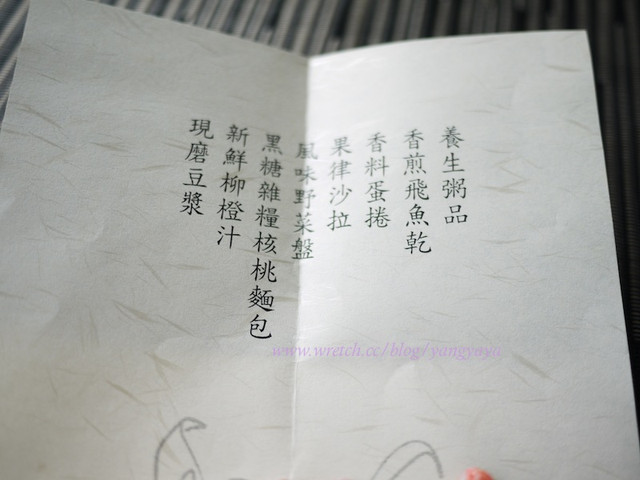 養生粥品
香煎飛魚乾
香料蛋捲
果律沙拉
風味野菜盤
黑糖雜糧核桃麵包
新鮮柳橙汁
現磨豆漿
www.wretch.cc/blog/yangyoyo